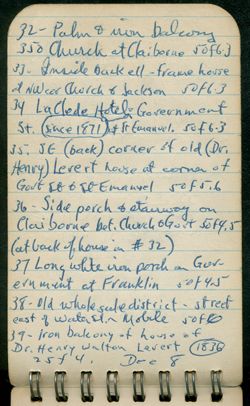 32- Palm & iron balcony
350 Church at Claiborne 50 f 6.3
33- Inside back ell - frame house
at NW cor Church & Jackson 50 f 6.3
34 LaClede Hotel - Government
St. (since 1871) at St Emanuel. 50 f 6.3
35. SE (back) corner of old (Dr.
Henry) Levert house at corner of
Govt St & St Emanuel 50 f 5.6
36- Side porch & stairway on
Claiborne bet. Church & Govt 50 f 4.5
(at back of house in # 32)
37 Long white iron porch on Gov-
ernment at Franklin 50 f 4.5
38- Old wholesale district - street
east of Water St. in Mobile 50 f
39- Iron balcony of house of
Dr. Henry Walton Levert (1836)
25 f 4. Dec 8